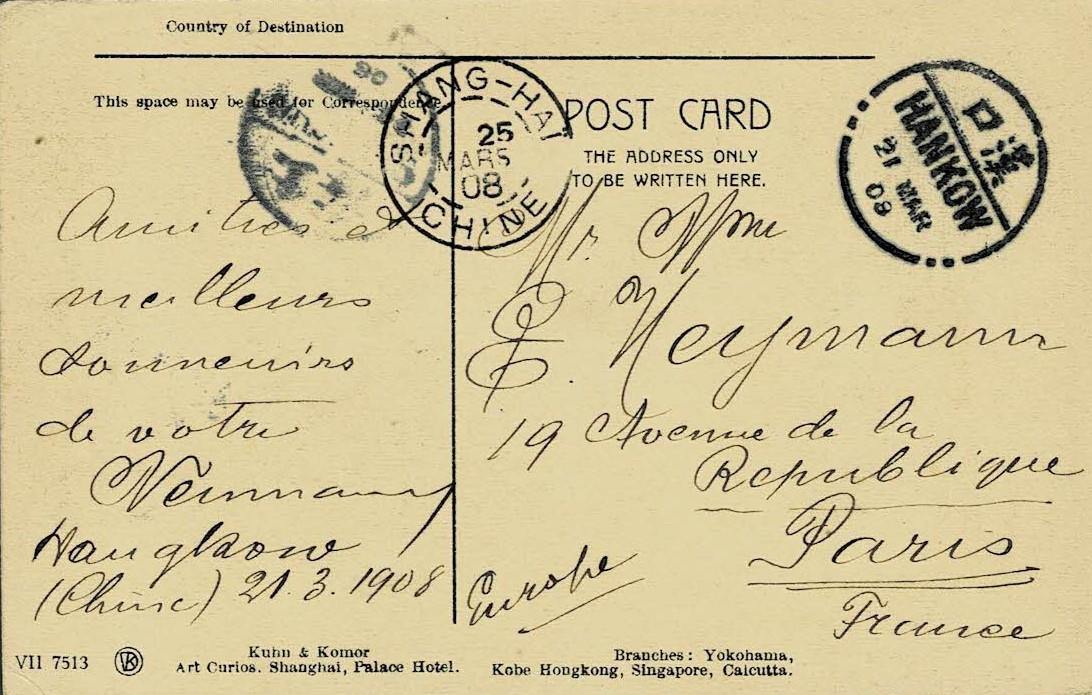 Country of Destination
This space may be used for Correspondence.
SHANG-HAI
25
MARS
08
CHINE
POST CARD
THE ADDRESS ONLY
TO BE WRITTEN HERE.
口漢
HANKOW
21 MAR
08
Amitiés &
meilleurs
souvenirs
de votre
Neumann
Hangkow
(Chine) 21.3.1908
Mr. Mme
E. Heymann
19 Avenue de la
Republique
Paris
France
Europe
VII 7513
Kuhn & Komor
Art Curios. Shanghai, Palace Hotel.
Branches: Yokohama,
Kobe Hongkong, Singapore, Calcutta.